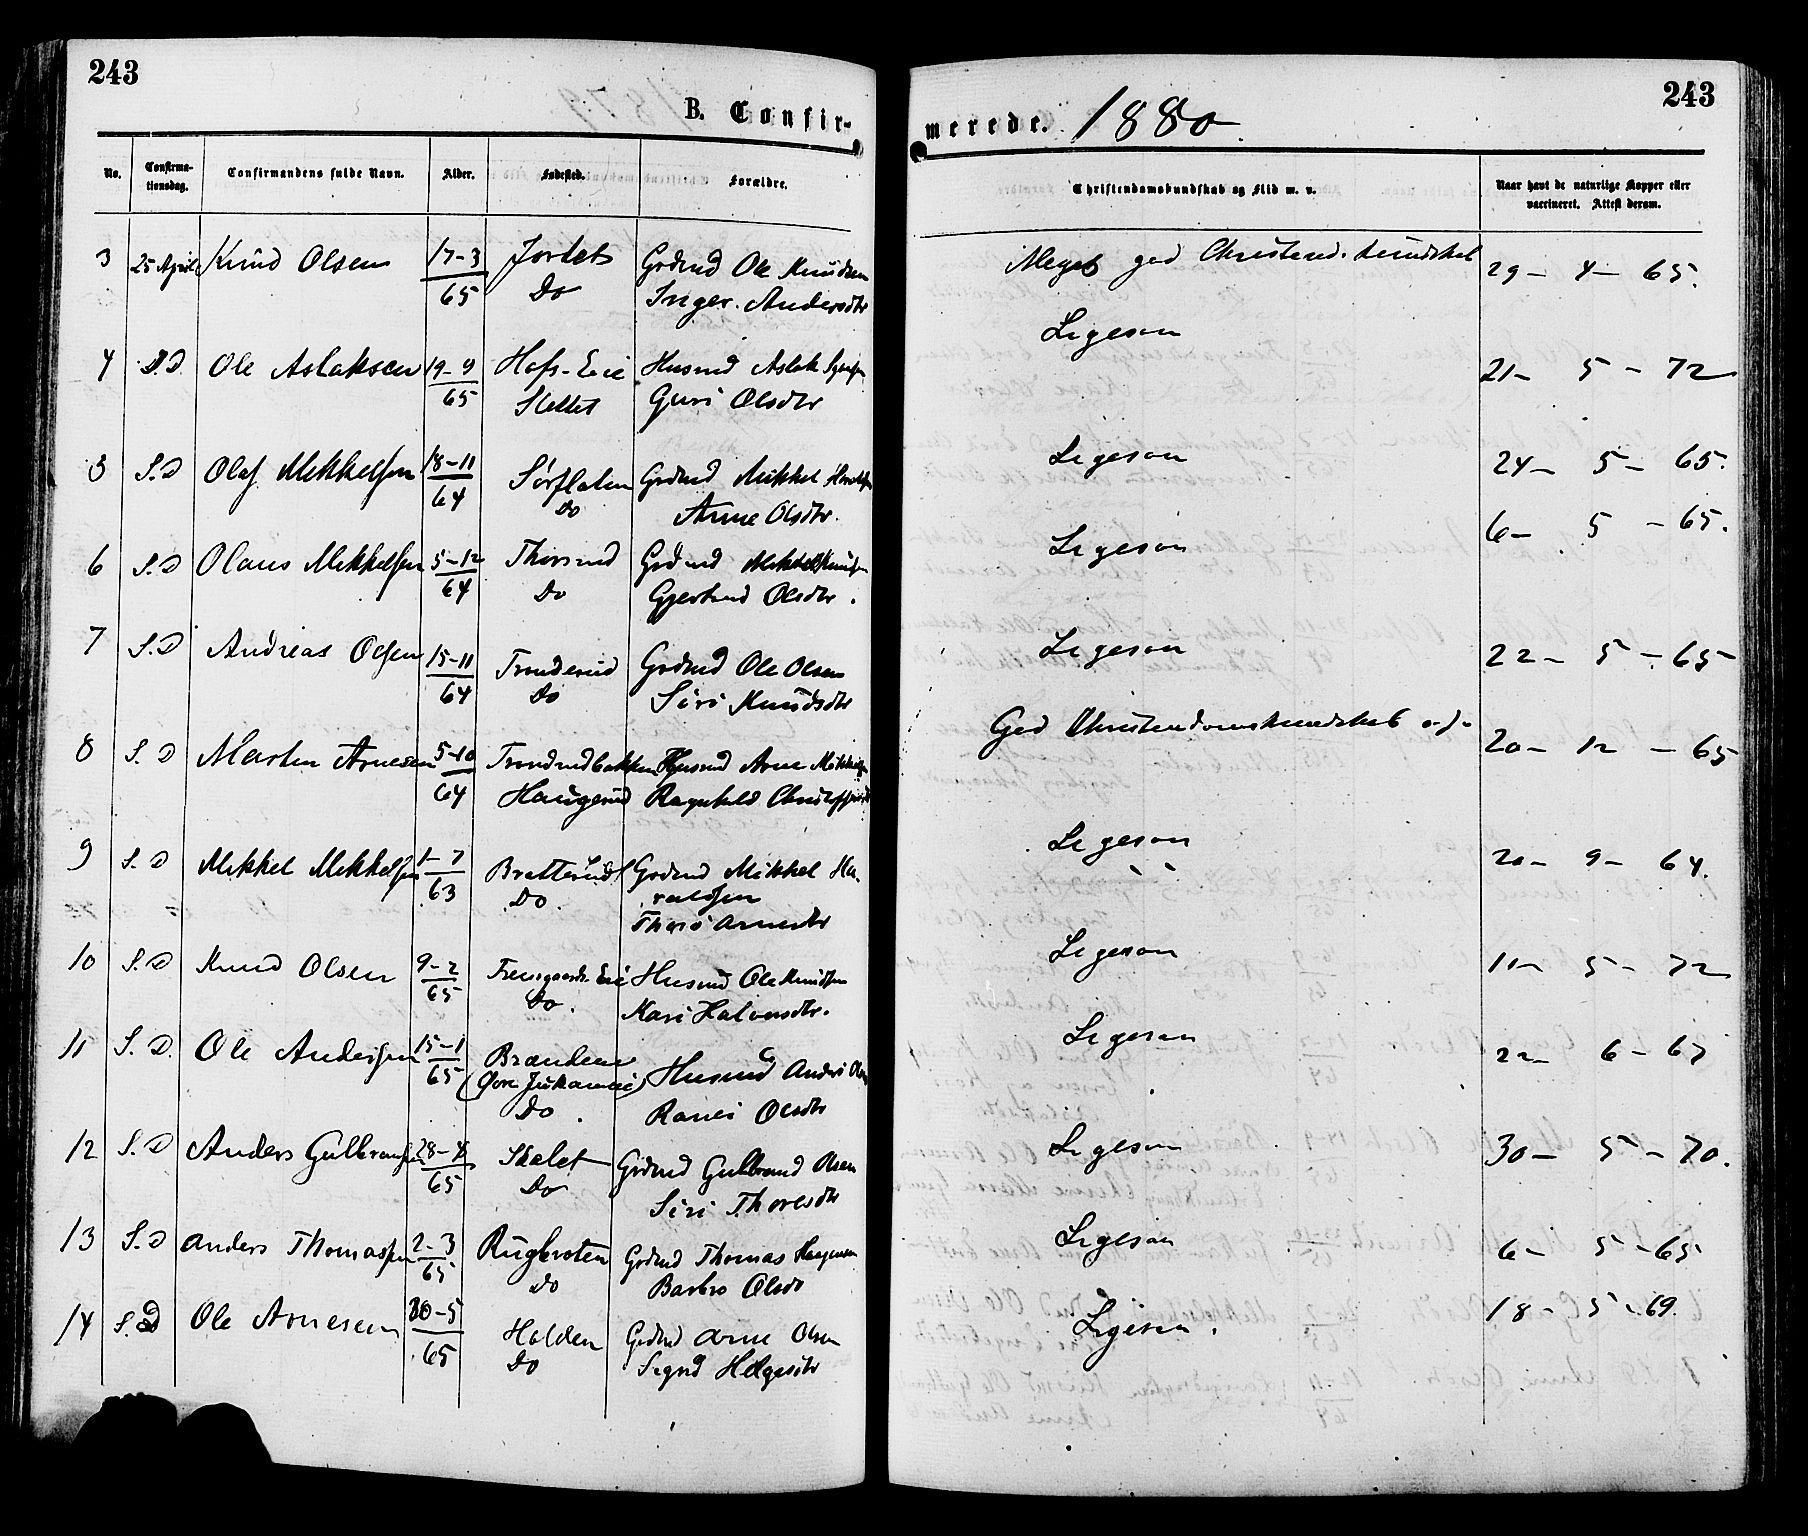 243
243
B. Confir-
merede. 1880.
No. Confirma-tionsdag. Confirmandens fulde Navn. Alder. Fødested. Forældre. Christendomskundskab og Flid m. v. Naar havt de naturlige Kopper eller vaccineret. Attest derom.
3 25 April Knud Olsen 17-3 Jordet Grdmd Ole Knudsen Meget god Christend. kundskab 29 - 4 - 65.
65 Do Inger Andersdtr
4 S.D. Ole Aslaksen 19-9 Hofs-Eie Husmd Aslak Ligesaa 21 - 5 - 72
65 Slettet Guri Olsdtr
5 S.D Olaf Mikkelsen 18-11 Sørflaten Grdmd Mikkel Ligesaa 24 - 5 - 65.
64 Do Anne Olsdtr.
6 S.D Olaus Mikkelsen 5-12 Thorsrud Grdmd Mikkel Knudsen Ligesaa 6 - 5 - 65.
64 Do Gjertrud Olsdtr.
7 S.D Andreas Olsen 15-11 Tronderud Grdmd Ole Olsen Ligesaa 22 - 5 - 65
64 Do Siri Knudsdtr
8 S.D Martin Arnesen 5-10 Trondrudbakken Husmd Arne Mikkelsen God Christendomskundskab o.s. 20 - 12 - 65
64 Haugerud Ragnhild
9 S.D Mikkel Mikkelsen 1-7 Bratterud Grdmd Mikkel Ha- Ligesaa 20 - 9 - 64.
63 Do. raldsen
Thora Arnesdtr
10 S.D Knud Olsen 9-2 Eie Husmd Ole Knudsen Ligesaa 11 - 5 - 72
65 Do. Kari Halvorsdtr.
11 S.D. Ole Andersen 15-1 Branden Husmd Anders Olsen Ligesaa 22 - 6 - 67
65 Do. Olsdtr
12 S.D Anders Gulbransen 28-4 Skalet Grdmd Gulbrand Olsen Ligesaa 30 - 5 - 70.
65 Do Siri Thoresdtr
13 S.D Anders Thomassen 2-3 Rugbroten Grdmd Thomas Ligesaa 6 - 5 - 65
65 Do Barbro Olsdt
14 S.D Ole Arnesen 20-5 Holden Grdmd Arne Olsen Ligesaa. 18 - 5 - 69.
65 Do Sigrid Helgesdtr